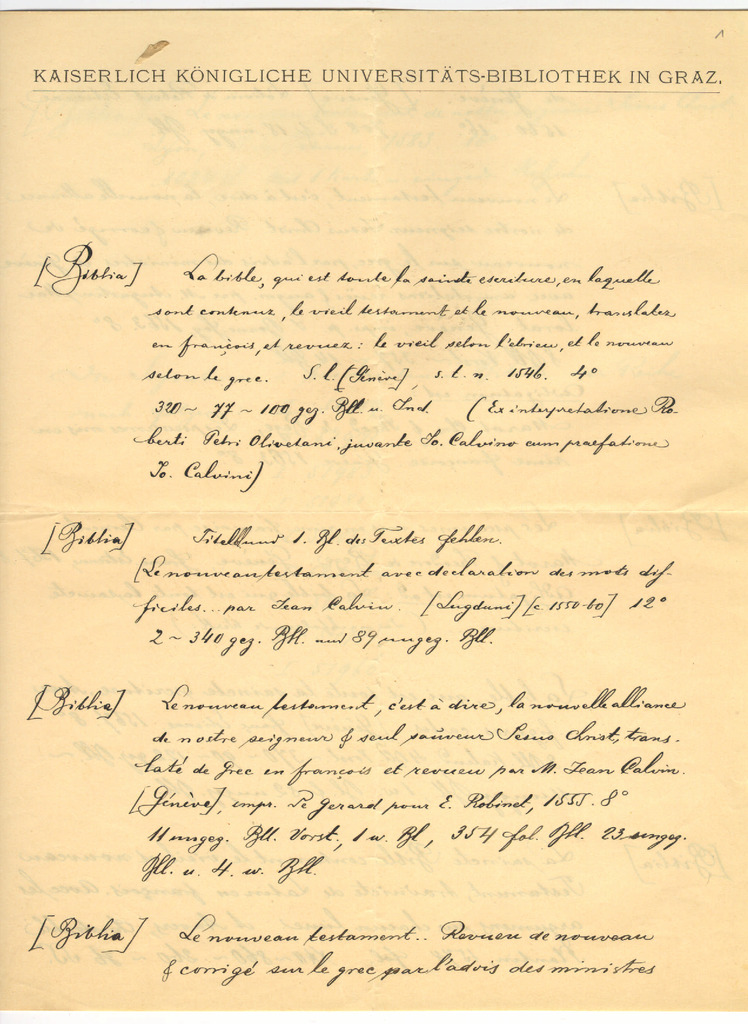 1
KAISERLICH KÖNIGLICHE UNIVERSITÄTS-BIBLIOTHEK IN GRAZ.
[Biblia] La bible, qui est toute la saincte escriture, en laquelle
sont contenuz, le vieil testament et le nouveau, translatez
en françois, et revuez: le vieil selon l'ebrieu, et le nouveau
selon le grec. S. l. [Genève], s. t. n. 1546. 4°
320 ~ 77 ~ 100 gez. Bll. u. Ind. (Ex interpretatione Ro-
berti Petri Olivetani, juvante Jo. Calvino cum praefatione
Jo. Calvini)
[Biblia] Titelbl. und 1. Bl. des Textes fehlen.
[Le nouveau testament avec declaration des mots dif-
ficiles... par Jean Calvin. [Lugduni] [c. 1550-60] 12°
2 ~ 340 gez. Bll. und 89 ungez. Bll.
[Biblia] Le nouveau testament, c'est à dire, la nouvelle alliance
de nostre seigneur & seul sauveur Jesus Christ, trans-
laté de Grec en françois et reveu par M. Jean Calvin.
[Génève], impr. de Gerard pour E. Robinet, 1555. 8°
11 ungez. Bll. Vorst., 1 w. Bl., 354 fol. Bll. 23 ungez.
Bll. u. 4. w. Bll.
[Biblia] Le nouveau testament.. Reveu de nouveau
& corrigé sur le grec par l'advis des ministres